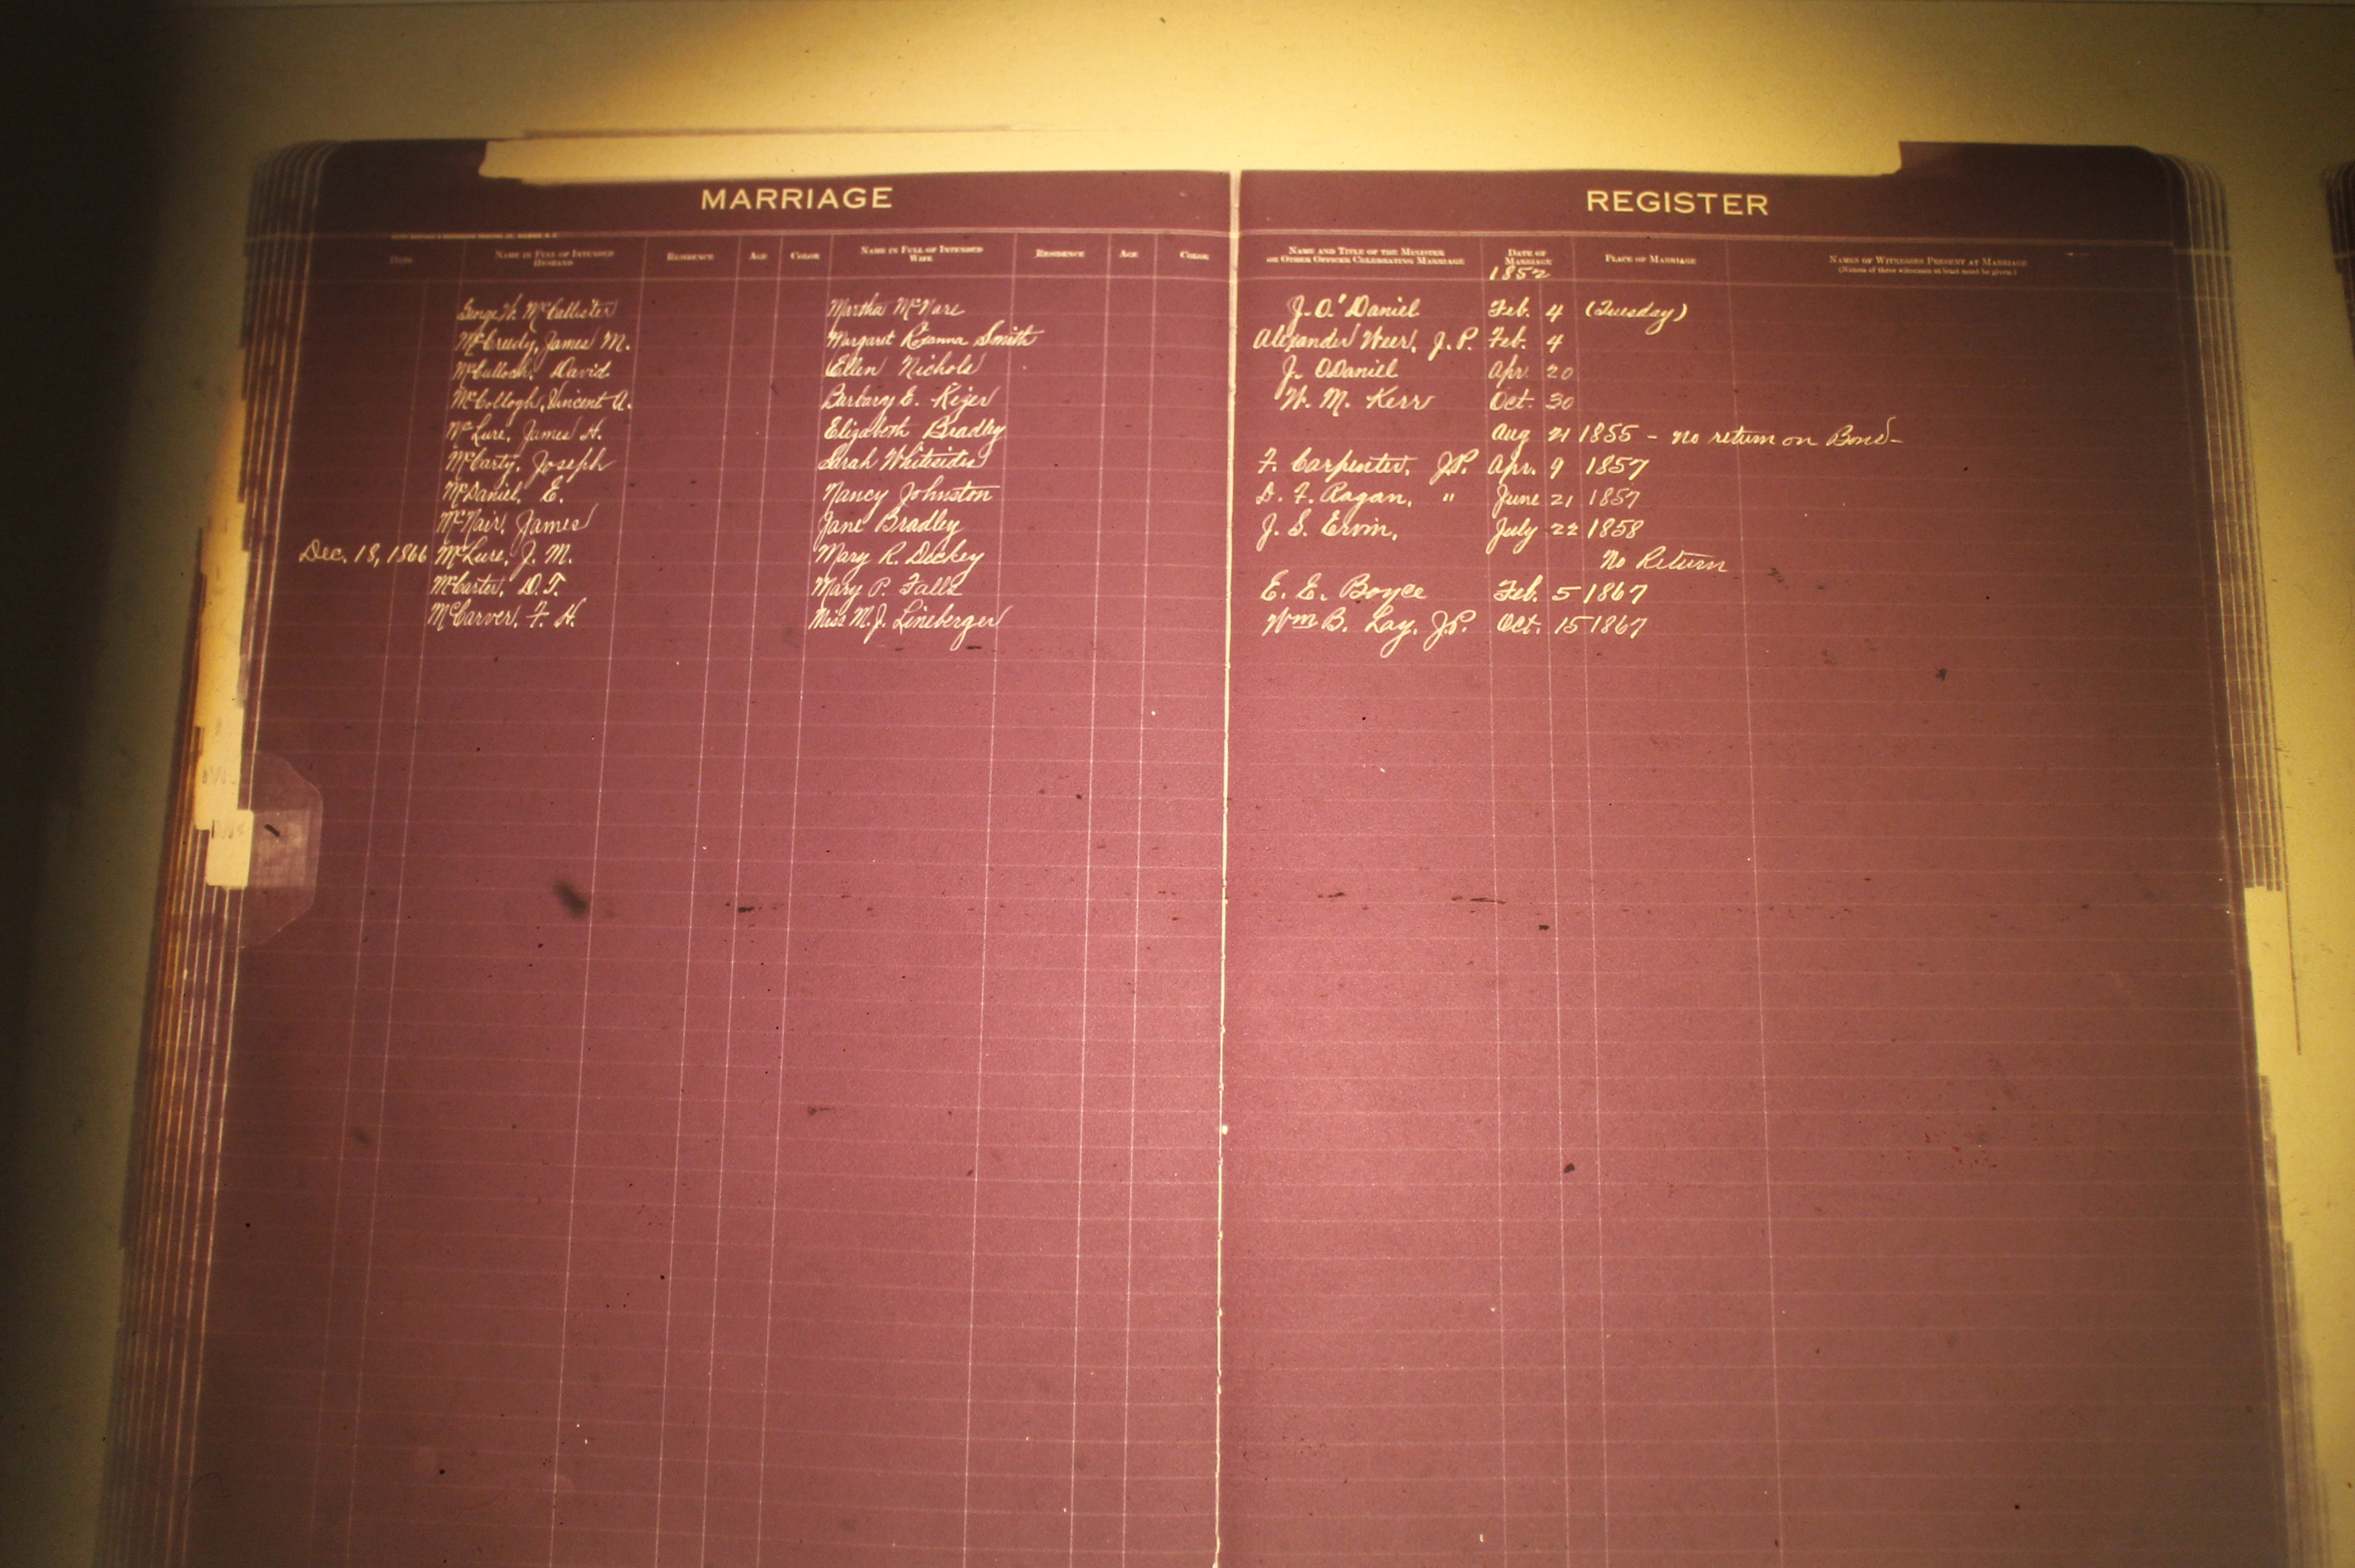 MARRIAGE REGISTER
DATE NAME IN FULL OF INTENDED HUSBAND RESIDENCE AGE COLOR NAME IN FULL OF INTENDED WIFE RESIDENCE AGE COLOR NAME AND TITLE OF THE MINISTER OR OTHER OFFICER CELEBRATING MARRIAGE DATE OF MARRIAGE PLACE OF MARRIAGE NAMES OF WITNESSES PRESENT AT MARRIAGE
(Names of three witnesses at least must be given.)
1852
George W. McCallister Martha McNare J. O'Daniel Feb. 4 (Tuesday)
McCready, James M. Margaret Roxanna Smith Alexander Weer, J.P. Feb. 4
McCulloch, David Ellen Nichols J. ODaniel Apr. 20
McCollogh, Vincent A. Barbary E. Kizer W. M. Kerr Oct. 30
McLure, James H. Elizabeth Bradley Aug 21 1855 - no return on Bond-
McCarty, Joseph Sarah Whitesides F. Carpenter, J.P. Apr. 9 1857
McDaniel, E. Nancy Johnston D. F. Ragan, " June 21 1857
McNair, James Jane Bradley J. S. Ervin, July 22 1858
Dec. 18, 1866 McLure, J. M. Mary R. Dickey No Return
McCarter, D.T. Mary P. Falls E. E. Boyce Feb. 5 1867
McCarver, F. H. Miss M. J. Lineberger Wm B. Lay, J.P. Oct. 15 1867